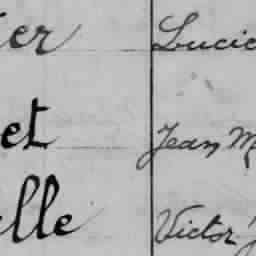 er Lucie
et Jean M
lle Victor J